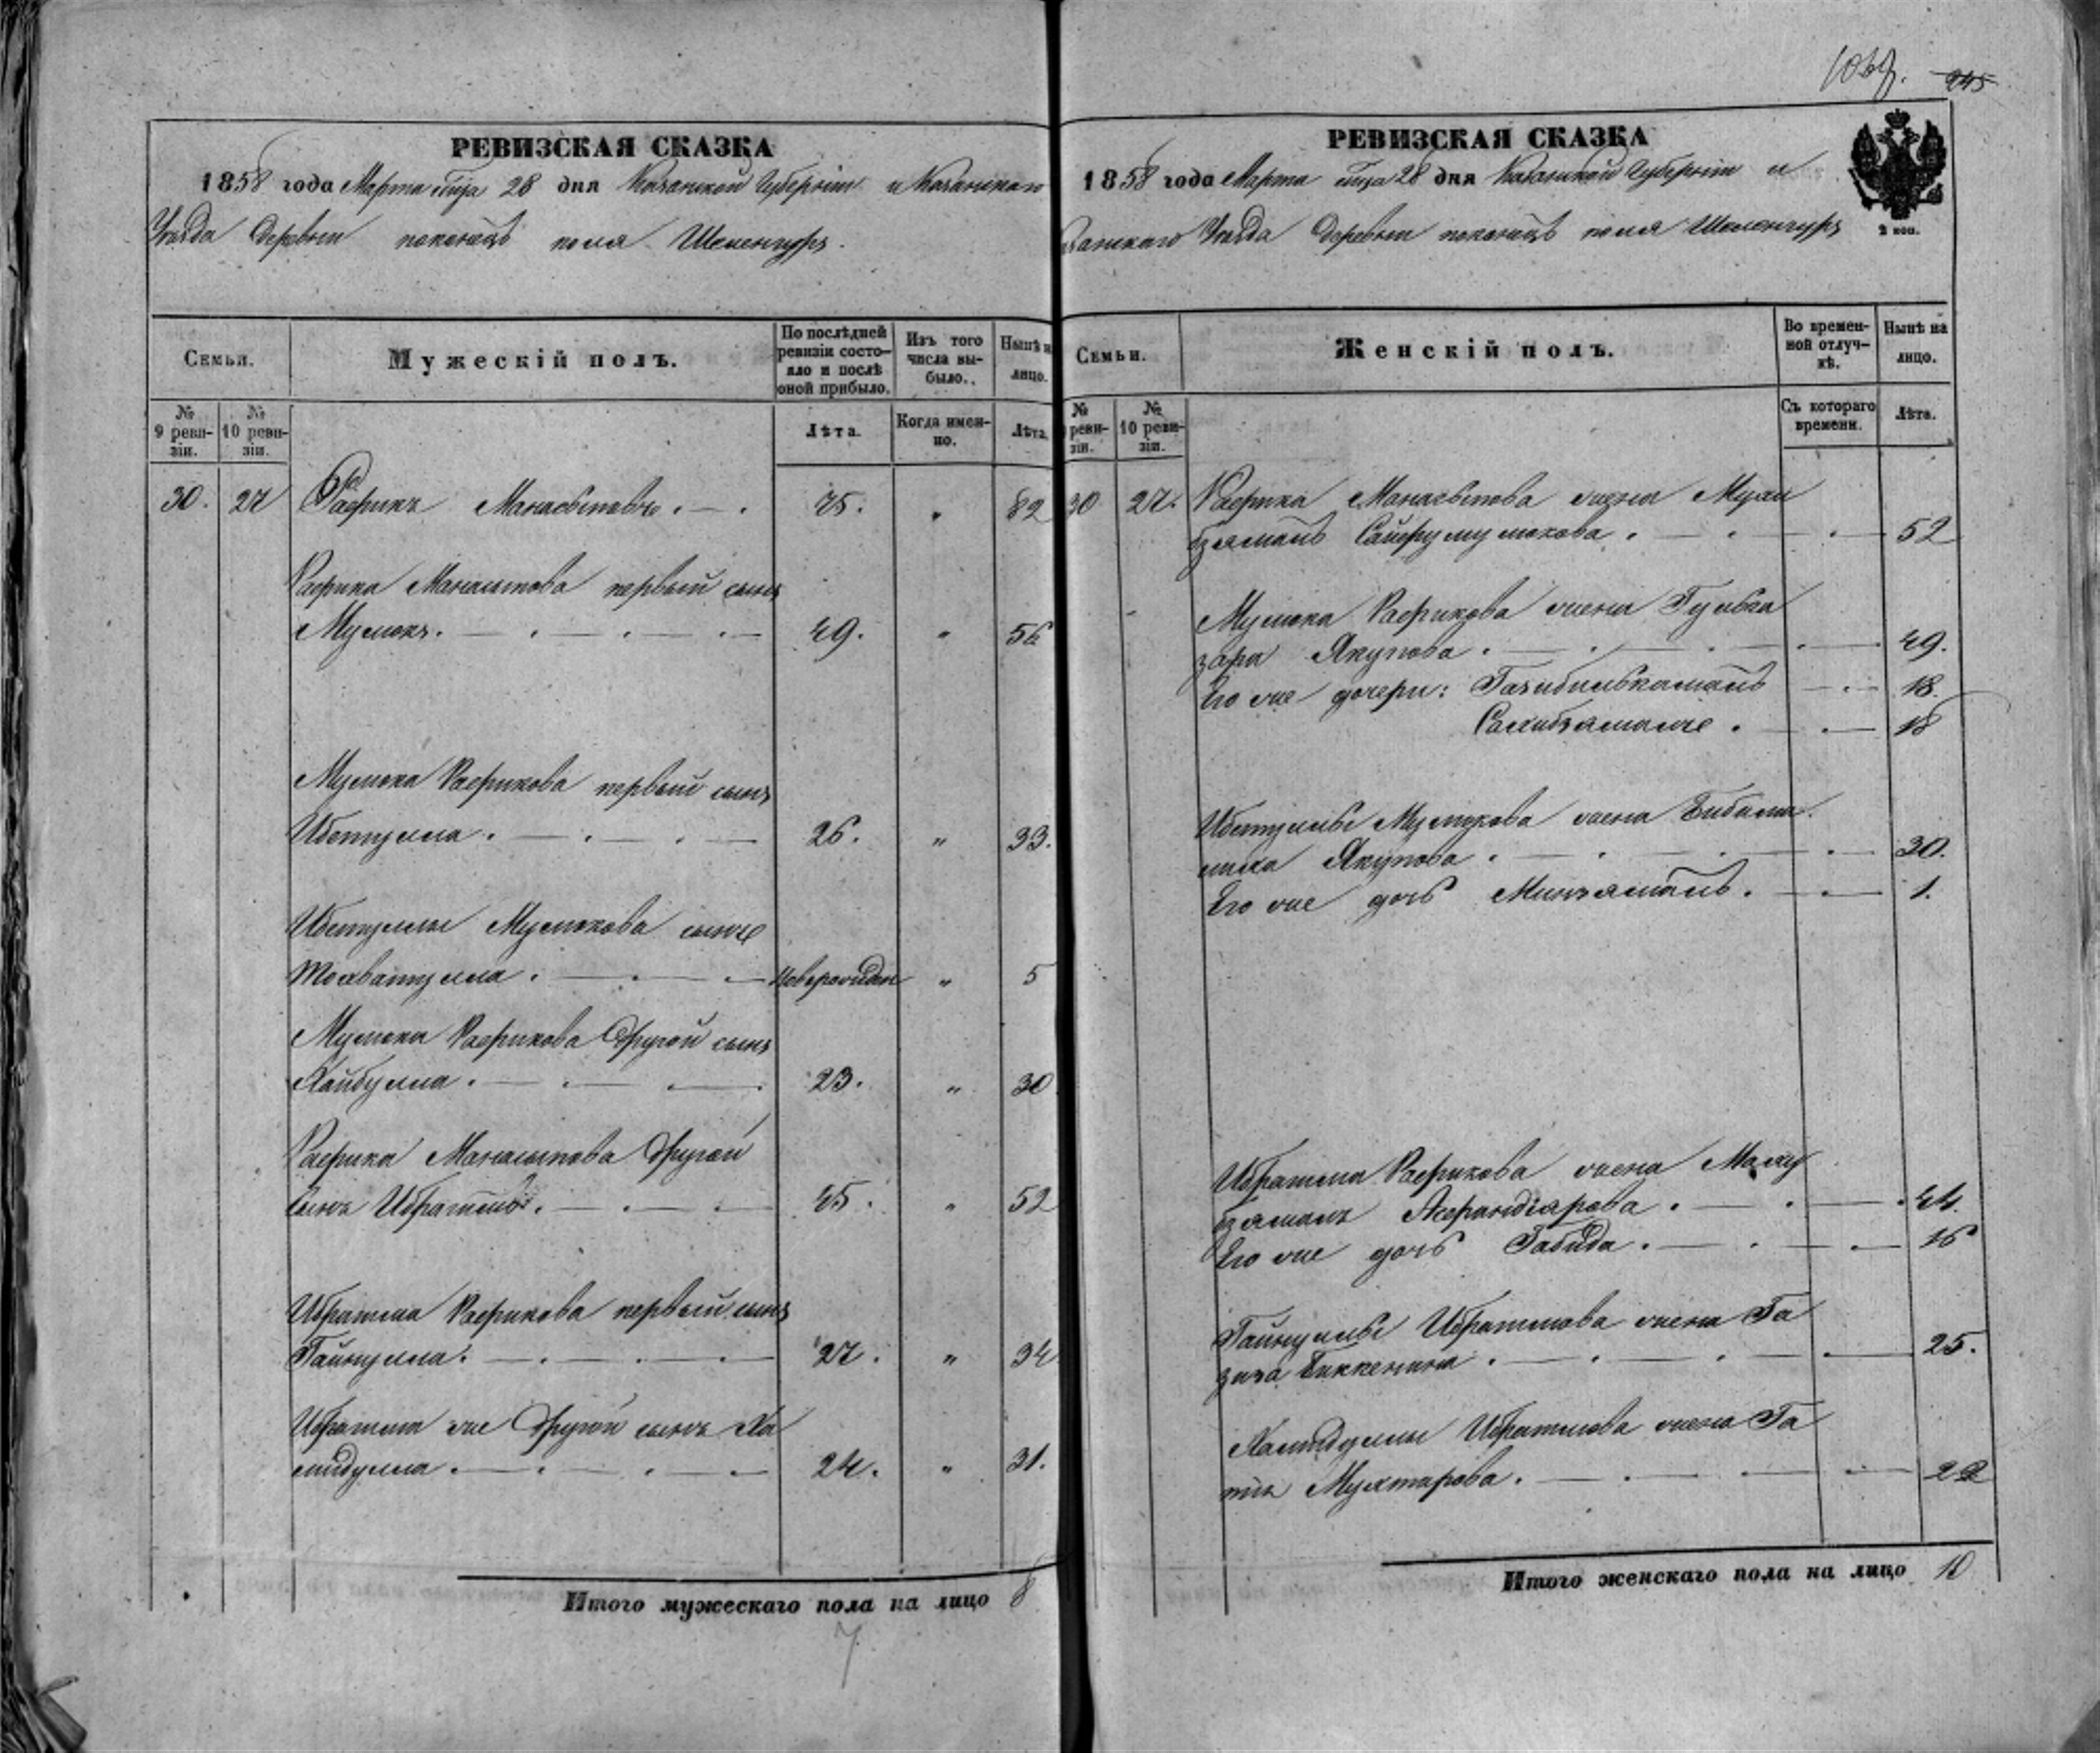 106 245
РЕВИЗСКАЯ СКАЗКА
1858 года Марта м-ца 28 дня Казанской Губерніи и Казанскаго
Уѣзда Деревни поконецъ поля Шеменгуръ.
Семьи.
Мужескій полъ.
По послѣдней ревизіи состояло и послѣ оной прибыло.
Изъ того числа выбыло.
Нынѣ на лицо.
№ 9 ревизіи.
№ 10 ревизіи.
Лѣта.
Когда именно.
Лѣта.
30. 27 Рафикъ Манасыповъ. 75. " 82
Рафика Манасыпова первый сынъ
Мулюкъ. 49. " 56
Мулюка Рафикова первый сынъ
Ибетулла. 26. " 33.
Ибетуллы Мулюкова сынъ
новорожден " 5
Мулюка Рафикова Другой сынъ
Хайбулла. 23. " 30
Рафика Манасыпова Другой
сынъ Ибрагимъ. 45. " 52
Ибрагима Рафикова первый сынъ
Гайнулла. 27. " 34
Ибрагима же Другой сынъ Ха
мидулла. 24. " 31.
Итого мужескаго пола на лицо 8
7
РЕВИЗСКАЯ СКАЗКА
1858 года Марта м-ца 28 дня Казанской Губерніи и
Казанскаго Уѣзда Деревни поконецъ поля Шеменгуръ
2 коп.
Семьи.
Женскій полъ.
Во временной отлучкѣ.
Нынѣ на лицо.
№ ревизіи.
№ 10 ревизіи.
Съ котораго времени.
Лѣта.
30 27. Рафика Манасыпова жена Мухи
бзямалъ Сайфулмулюкова. 52
Мулюка Рафикова жена Гульба
зара Якупова. 49.
Его же дочери: 18.
18
Ибетуллы Мулюкова жена Биби
Якупова. 30.
Его же дочь Минзямалъ. 1.
Ибрагима Рафикова жена Маху
бзямалъ Асфандіярова. 44.
Его же дочь Габида. 16
Гайнуллы Ибрагимова жена Га
зиза Биккенина. 25.
Хамидуллы Ибрагимова жена Га
тія Мухтарова. 22
Итого женскаго пола на лицо 10